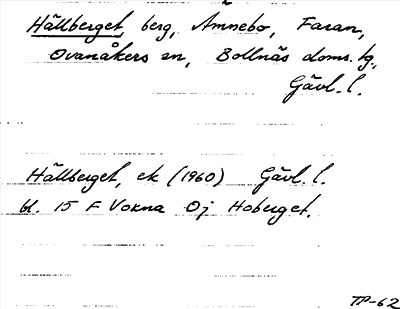 Hällberget, berg, Amnebo, Faran,
Ovanåkers sn, Bollnäs doms. tg.,
Gävl. l.
Hällberget, ek (1960) Gävl. l.
bl. 15 F Voxna Öj Hoberget.
TP-62